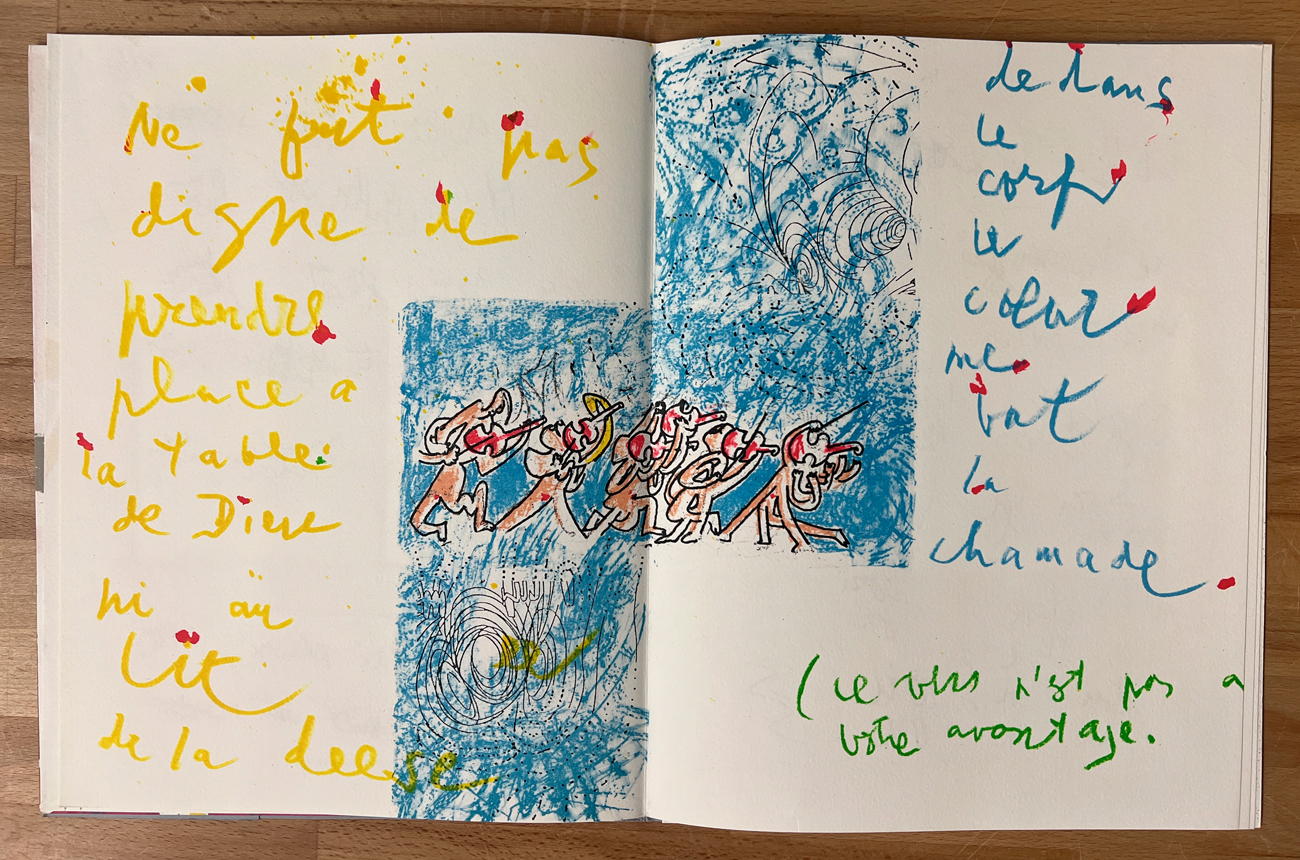 Ne fut pas
digne de
prendre
place a
la table
de Dieu
ni au
lit
de la deesse
de dans
le
corps
le
cœur
me
bat
la
chamade.
(ce vers n'est pas a
votre avantage.